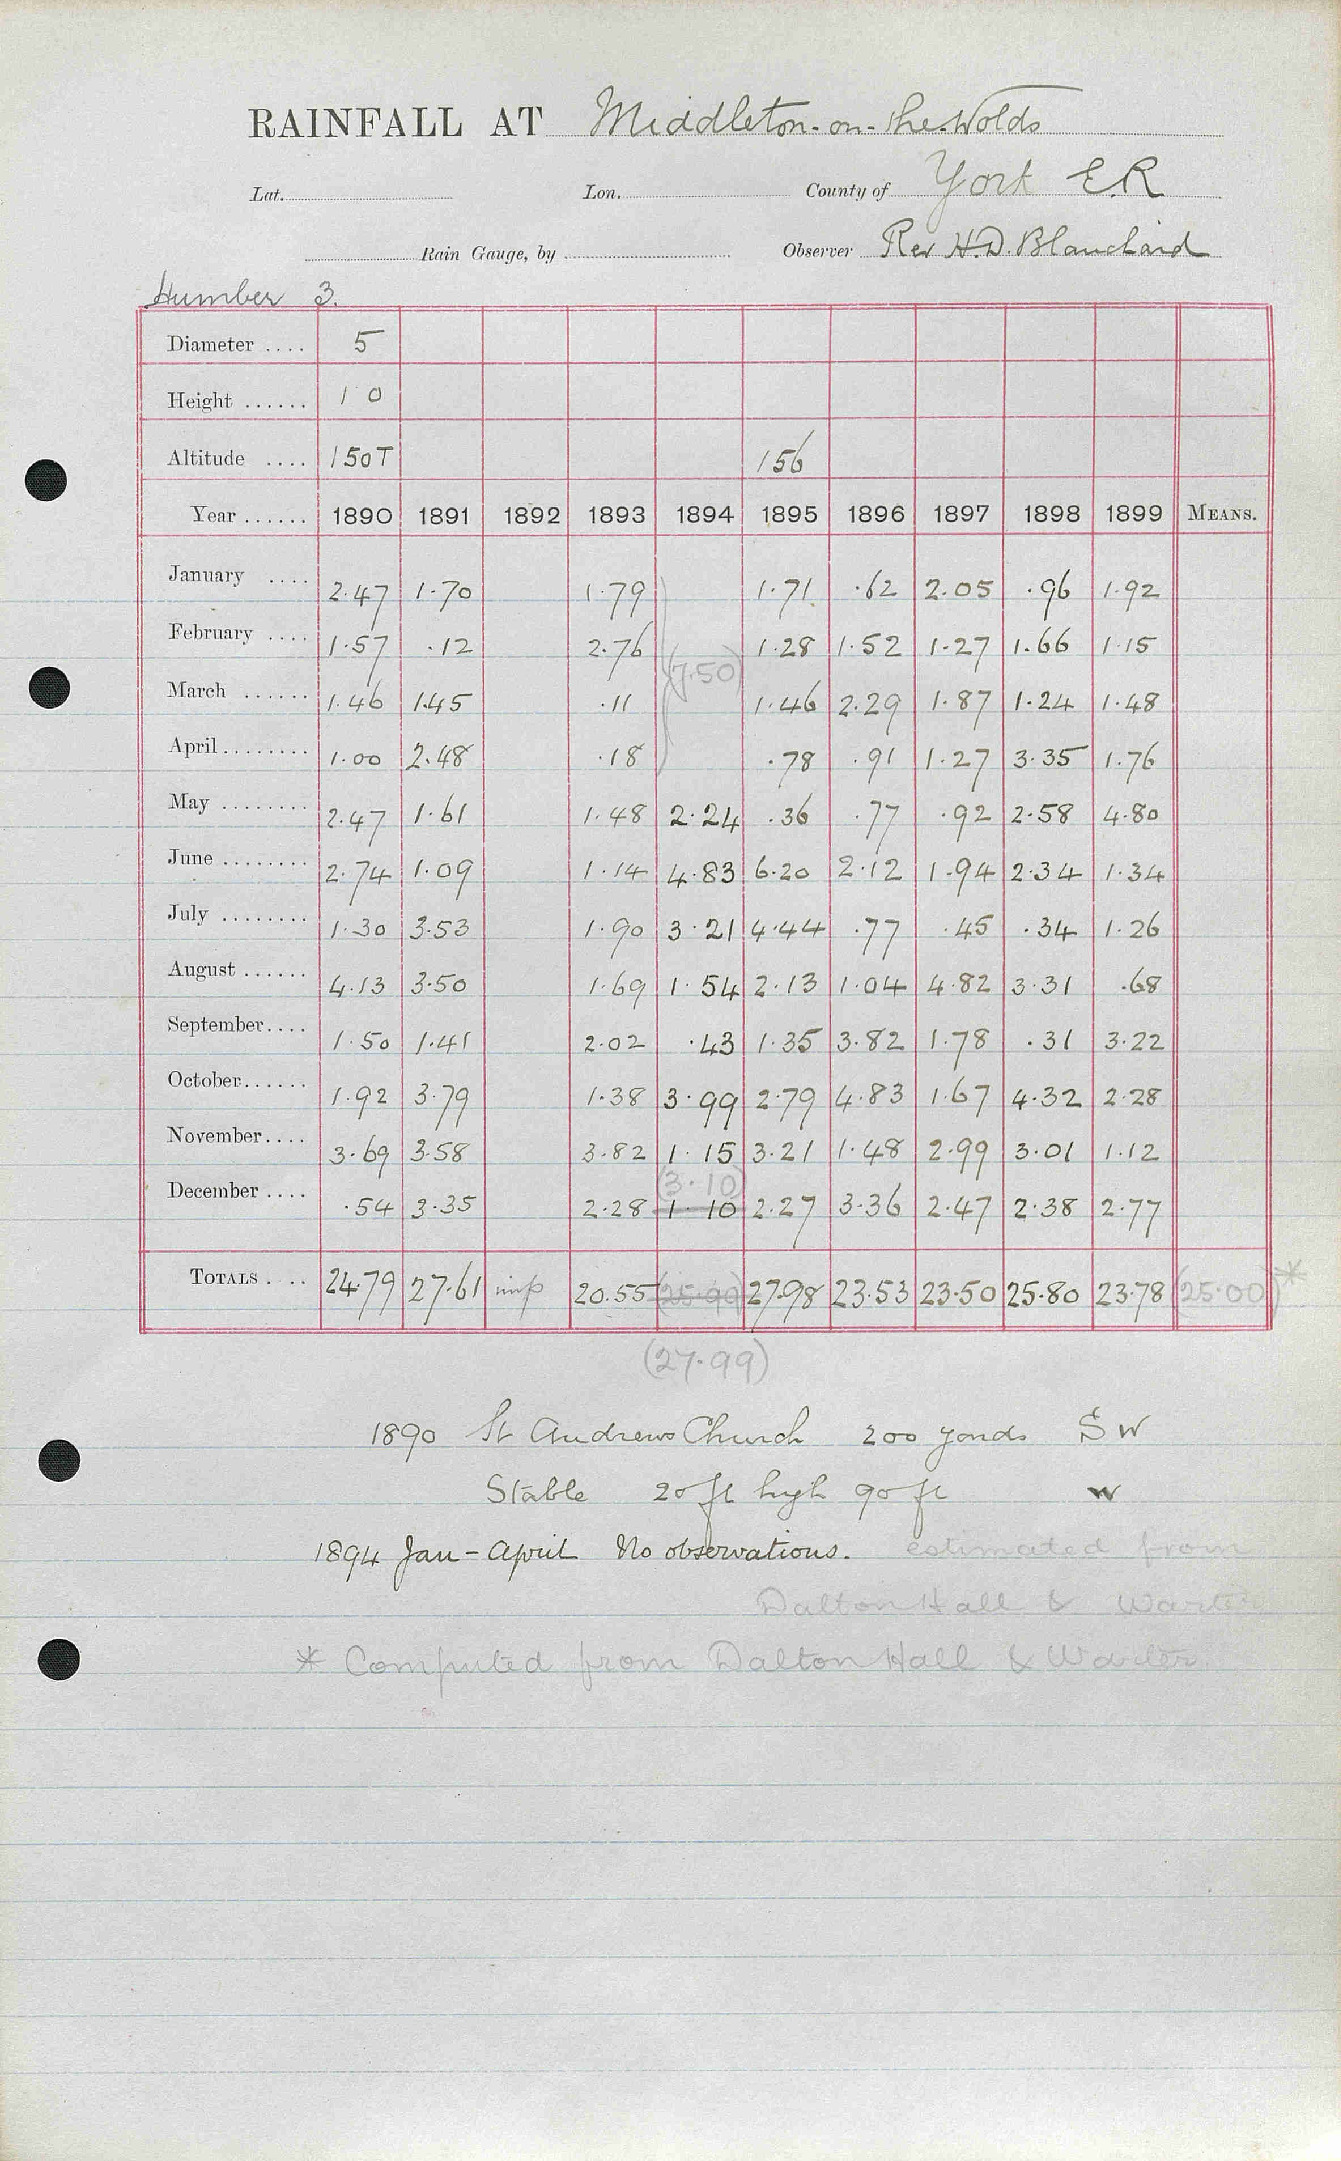 RAINFALL AT Middleton-on-the-Wolds
Lat. Lon. County of York E.R
Rain Gauge, by Observer Rev H.D. Blanchard
Humber 3.
Diameter .... 5
Height ...... 1 0
Altitude .... 150T 156
Year ...... 1890 1891 1892 1893 1894 1895 1896 1897 1898 1899 MEANS.
January .... 2.47 1.70 1.79 1.71 .62 2.05 .96 1.92
February .... 1.57 .12 2.76 1.28 1.52 1.27 1.66 1.15
(7.50)
March ...... 1.46 1.45 .11 1.46 2.29 1.87 1.24 1.48
April ........ 1.00 2.48 .18 .78 .91 1.27 3.35 1.76
May ........ 2.47 1.61 1.48 2.24 .36 .77 .92 2.58 4.80
June ........ 2.74 1.09 1.14 4.83 6.20 2.12 1.94 2.34 1.34
July ........ 1.30 3.53 1.90 3.21 4.44 .77 .45 .34 1.26
August ...... 4.13 3.50 1.69 1.54 2.13 1.04 4.82 3.31 .68
September .... 1.50 1.41 2.02 .43 1.35 3.82 1.78 .31 3.22
October ...... 1.92 3.79 1.38 3.99 2.79 4.83 1.67 4.32 2.28
November .... 3.69 3.58 3.82 1.15 3.21 1.48 2.99 3.01 1.12
(3.10)
December .... .54 3.35 2.28 1.10 2.27 3.36 2.47 2.38 2.77
TOTALS .... 24.79 27.61 imp 20.55 (25.99) 27.98 23.53 23.50 25.80 23.78 (25.00)*
(27.99)
1890 St Andrews Church 200 yards S W
Stable 20 ft high 90 ft W
1894 Jan - April No observations. estimated from
Dalton Hall & Warter
* Computed from Dalton Hall & Warter.